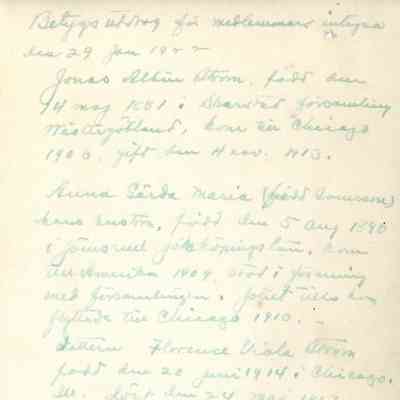 Betygs utdrag för medlemmars intagna
den 29 Jan 1922
Jonas Albin Strom, född den
14 maj 1881 i Skarstad församling
Westergötland, kom till Chicago
1906, gift den 4 nov. 1913.
Anna Gärda Maria (född Jonsson)
hans hustru, född den 5 aug 1890
i Jönköpingslän, kom
till Amerika 1909, stod i förening
med församlingen i Joliet Ills
flyttade till Chicago 1910.
Dottern Florence Viola Strom
född den 20 juni 1914 i Chicago,
Ill. döpt den 24